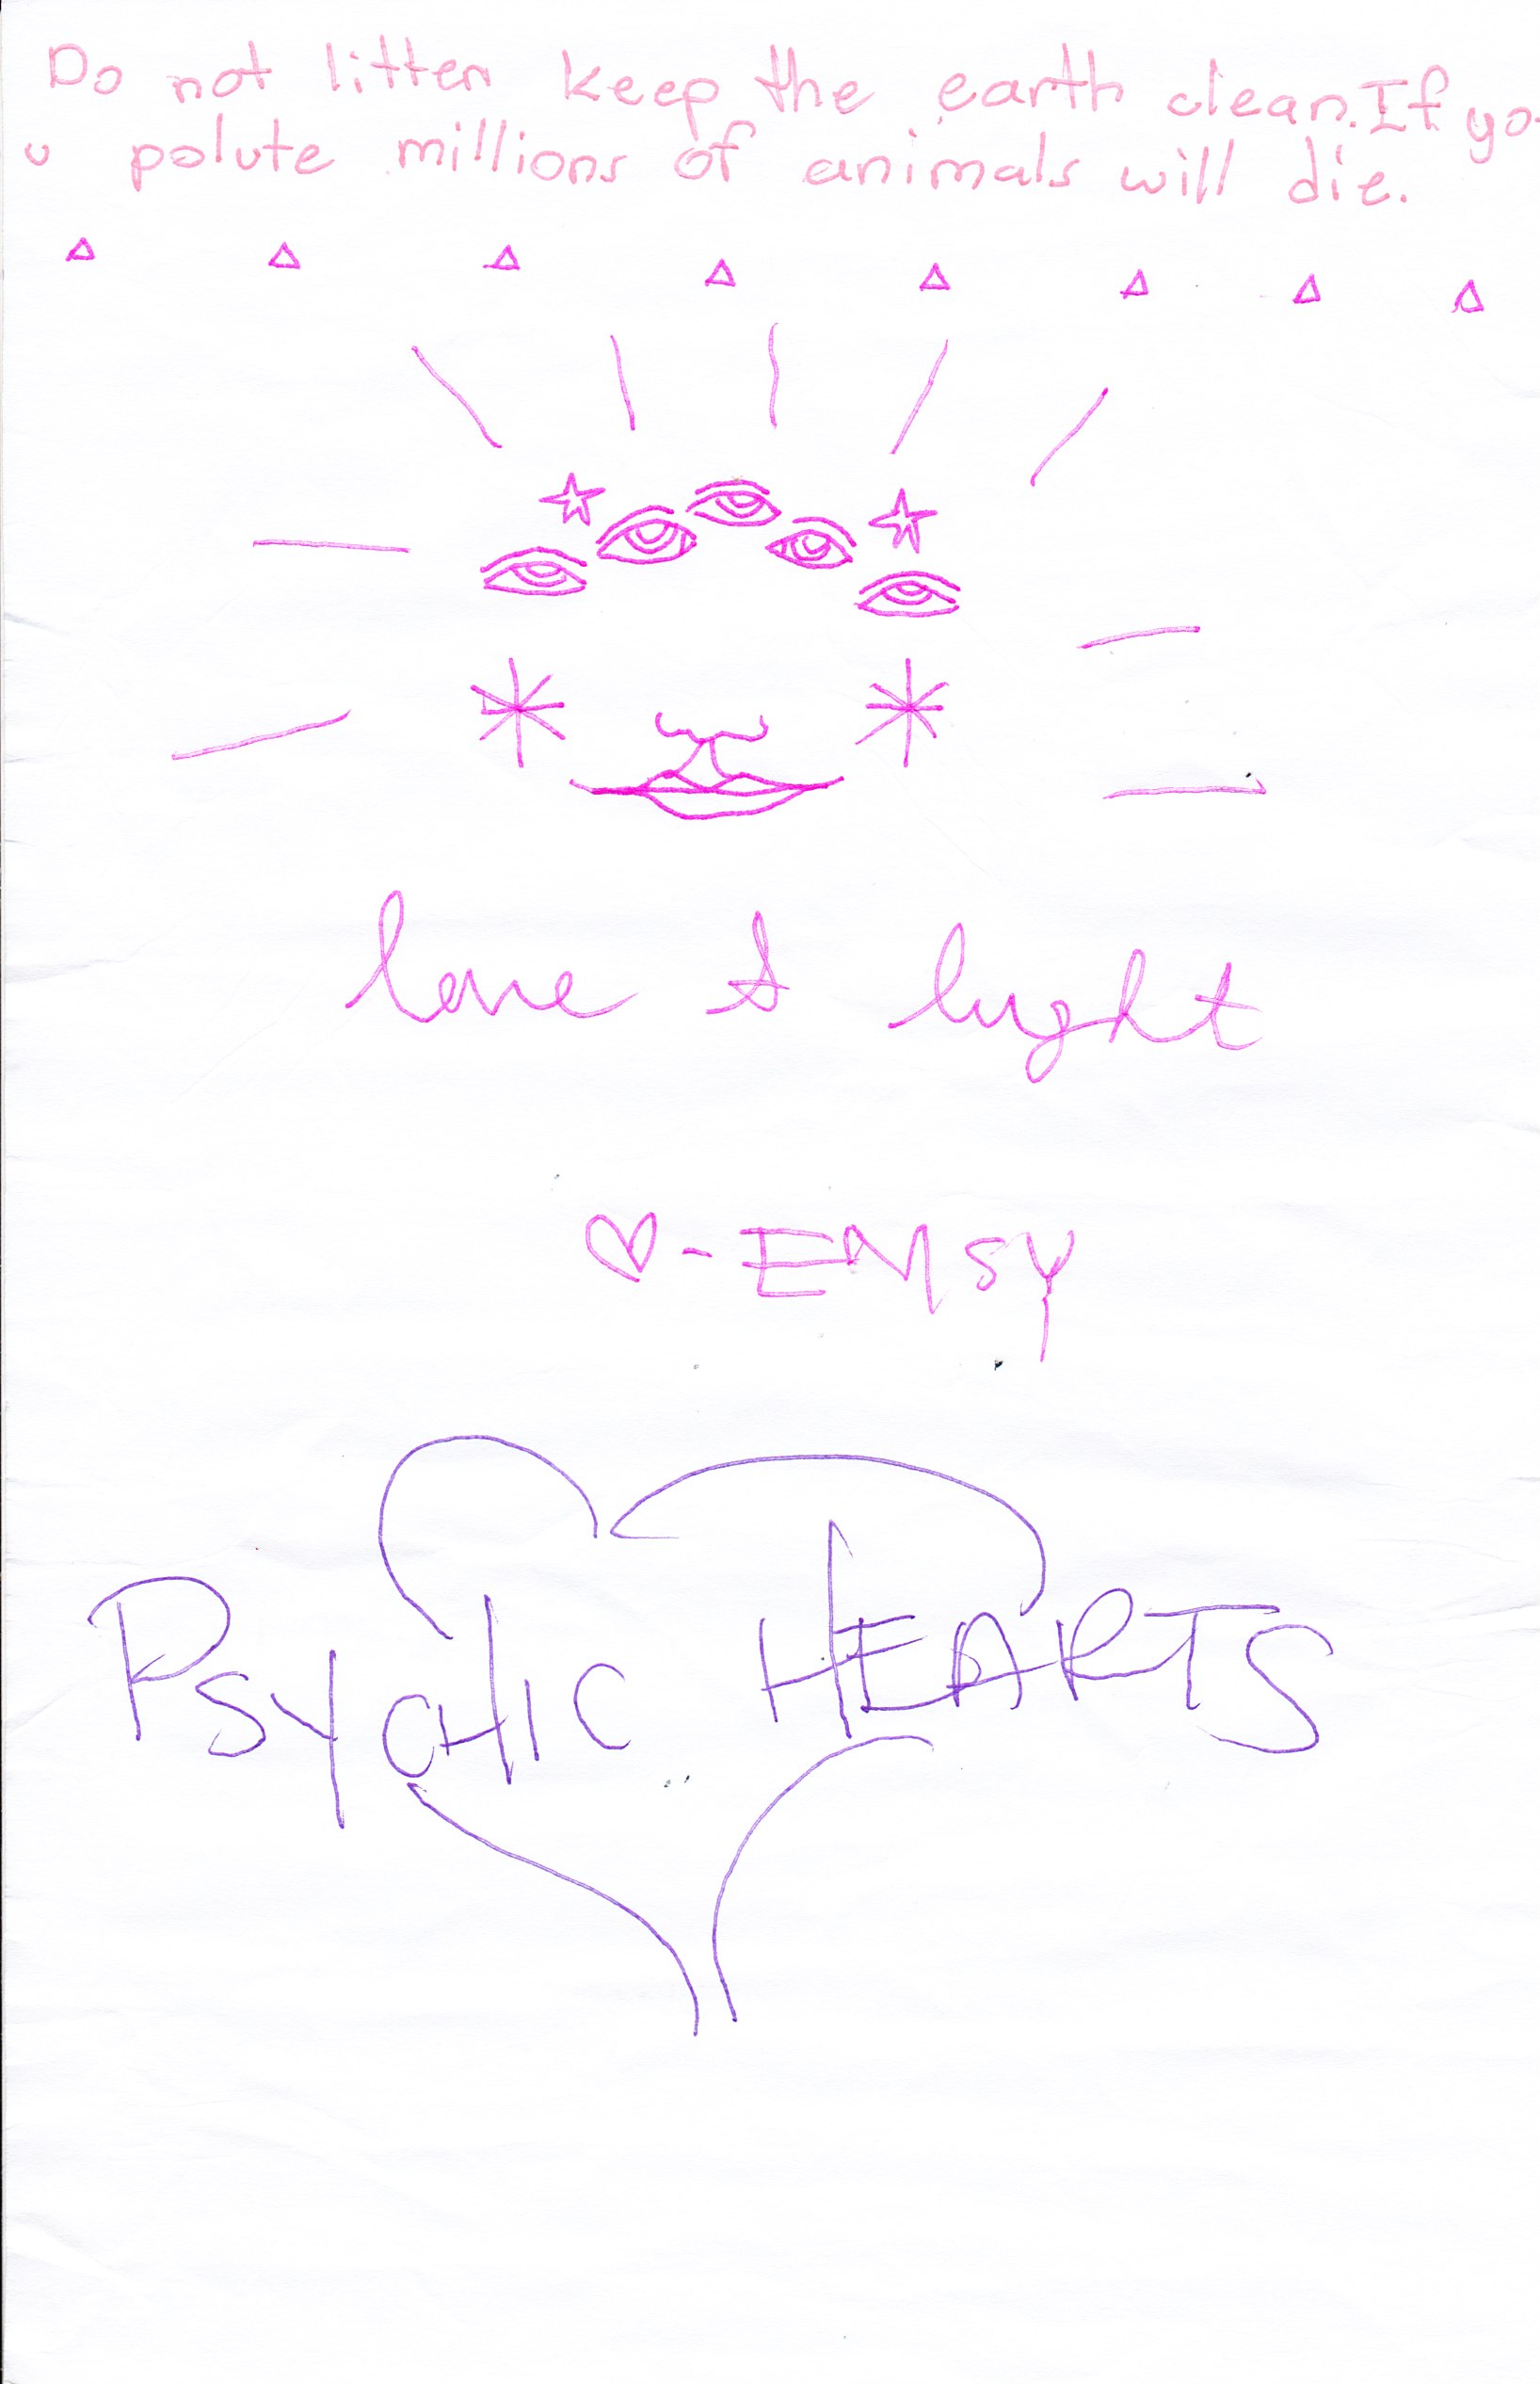 Do not litter keep the earth clean. If yo
u polute millions of animals will die.
love & light
♡ - EMSY
PSYCHIC HEARTS